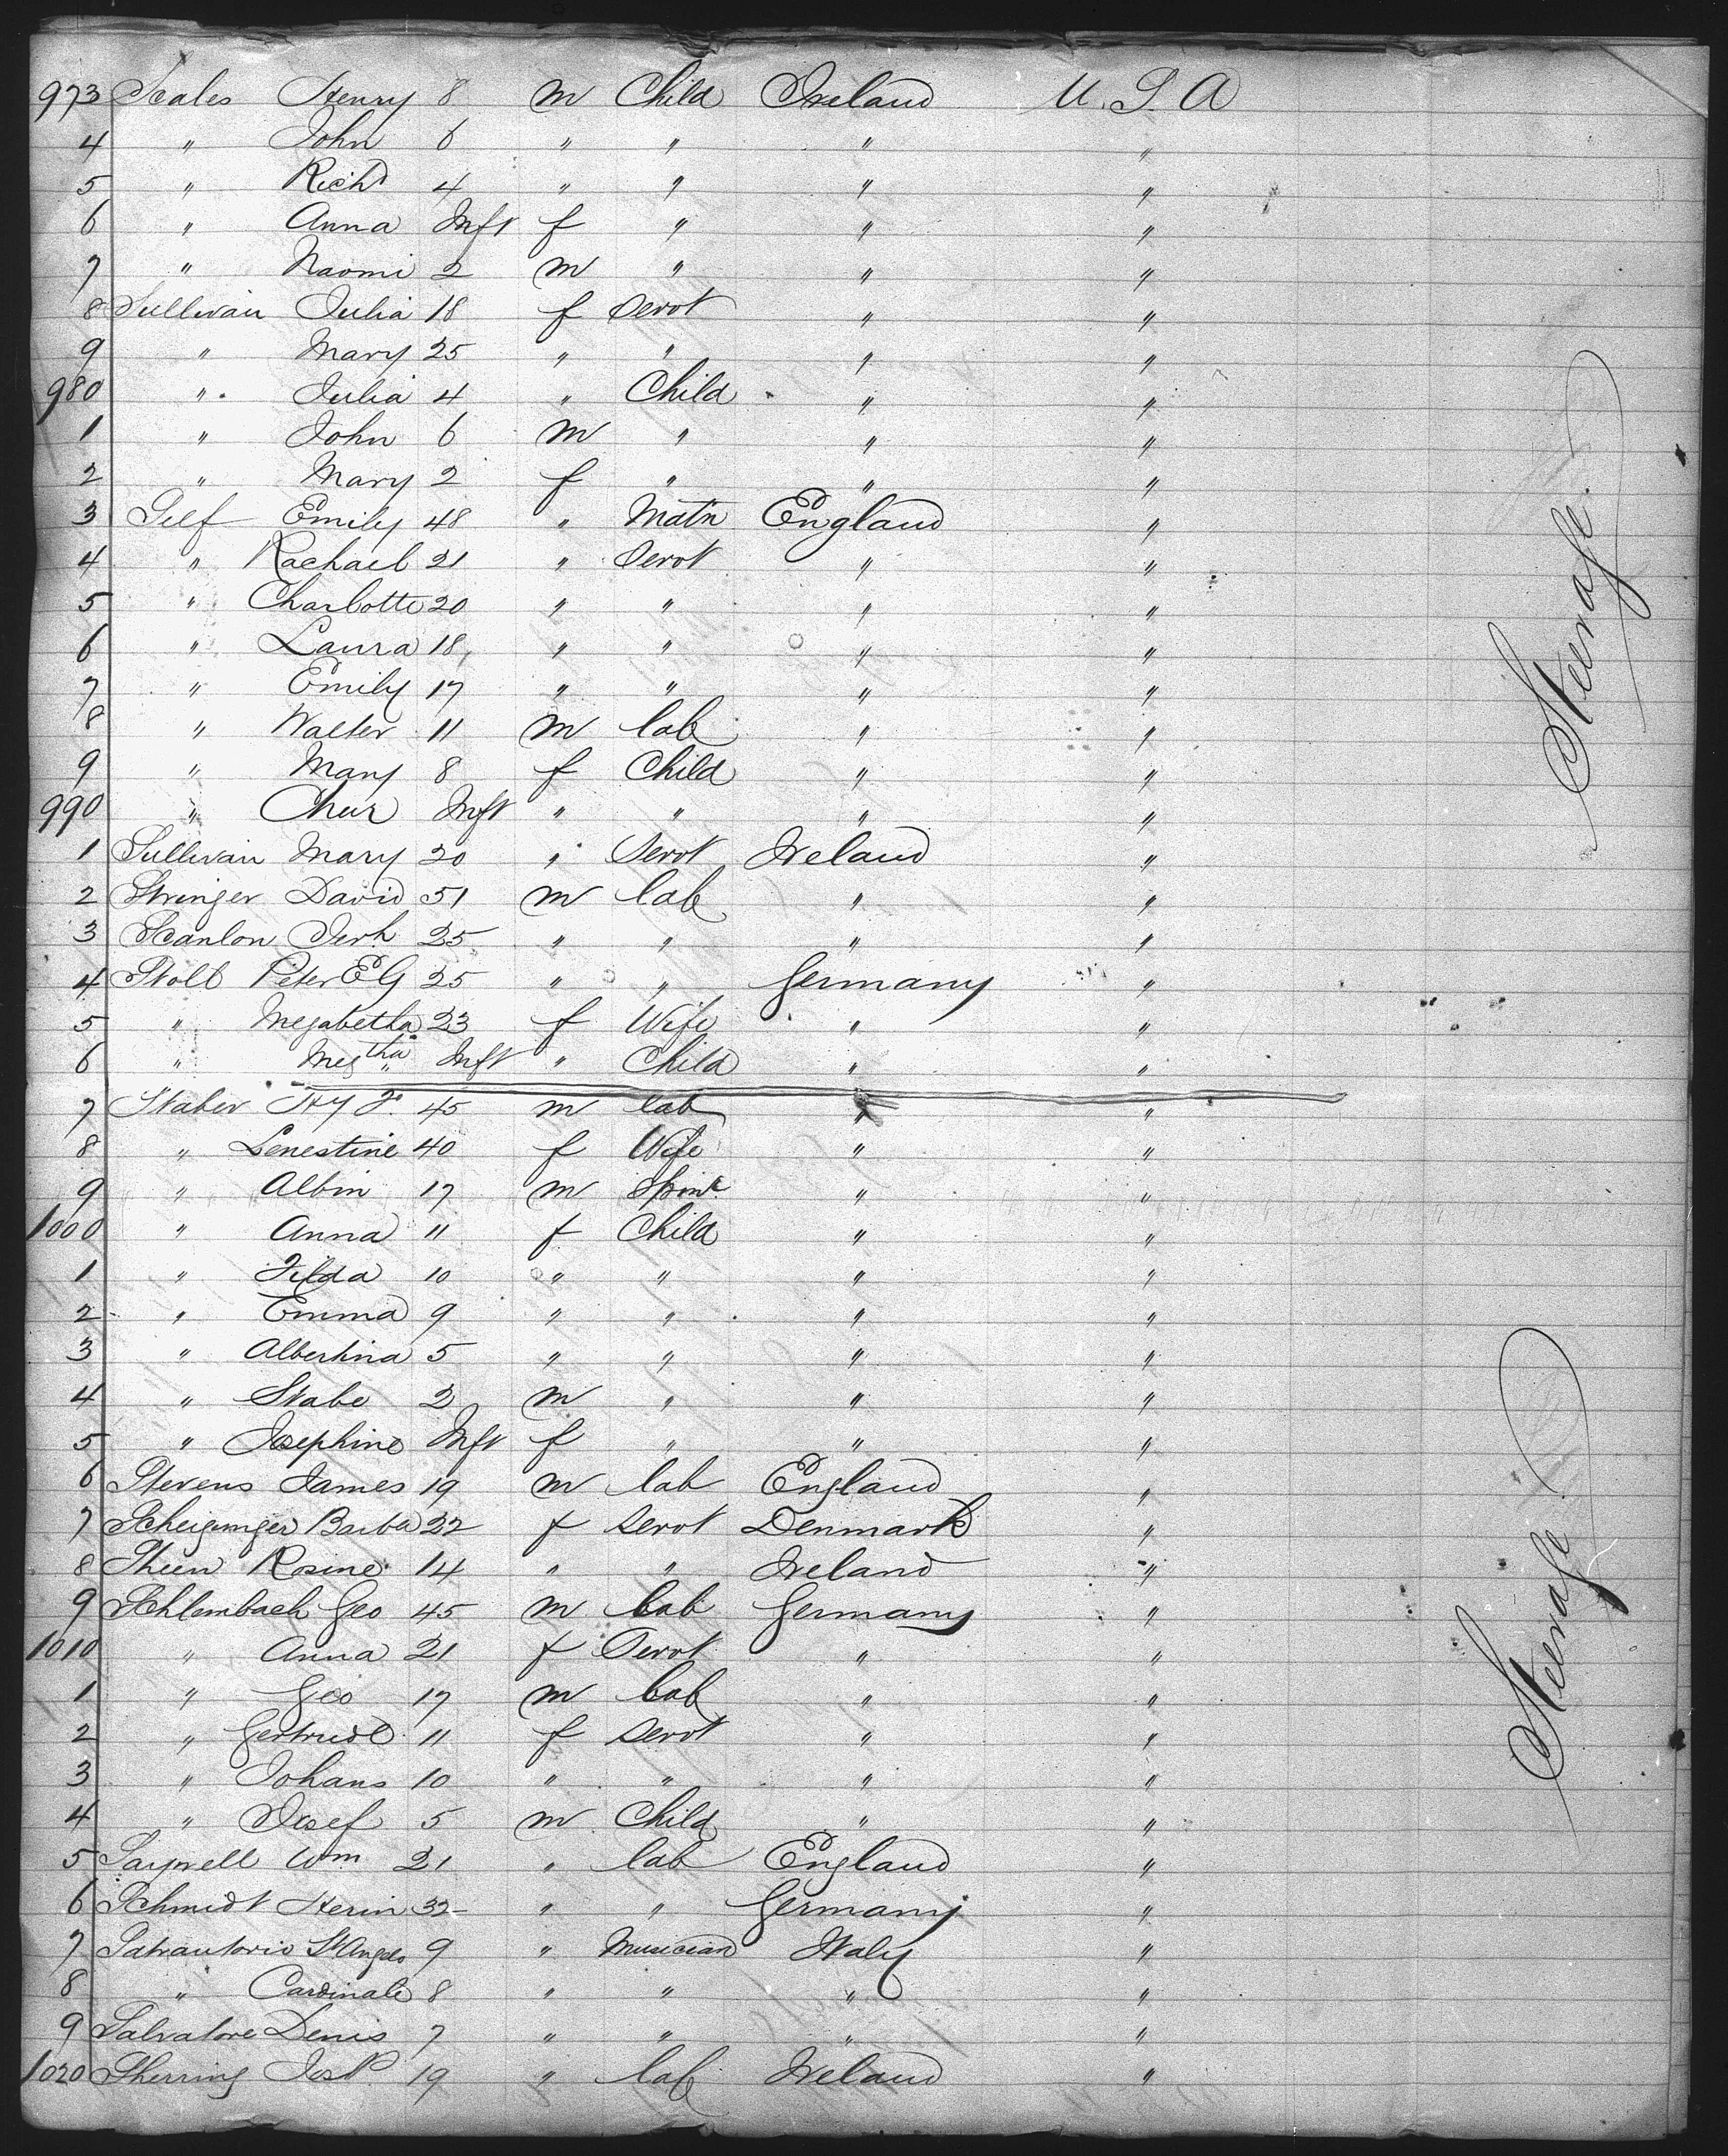 973 Scales Henry 8 m Child Ireland U.S.A
4 " John 6 " " " "
5 " Richd 4 " " " "
6 " Anna Inft f " " "
7 " Naomi 2 m " " "
8 Sullivan Julia 18 f Servt " "
9 " Mary 25 " " " "
980 " Julia 4 " Child " "
1 " John 6 m " " "
2 " Mary 2 f " " "
3 Self Emily 48 " Matn England "
4 " Rachael 21 " Servt " "
5 " Charlotte 20 " " " "
6 " Laura 18 " " " "
7 " Emily 17 " " " "
8 " Walter 11 m lab " "
9 " Mary 8 f Child " "
990 " Inft " " " "
1 Sullivan Mary 20 " Servt Ireland "
2 Stringer David 51 m lab " "
3 Scanlon Jerh 25 " " " "
4 Stoll Peter E G 25 " " Germany "
5 " Megabetha 23 f Wife " "
6 " Megtha Inft " Child " "
7 Staber Hy F. 45 m lab " "
8 " Lenestine 40 f Wife " "
9 " Albin 17 m Spinr " "
1000 " Anna 11 f Child " "
1 " Filda 10 " " " "
2 " Emma 9 " " " "
3 " Albertina 5 " " " "
4 " Stabe 2 m " " "
5 " Josephine Inft f " " "
6 Stevens James 19 m lab England "
7 Barba 22 f Servt Denmark "
8 Sheen Rosine 14 " " Ireland "
9 Schlembach Geo 45 m lab Germany "
1010 " Anna 21 f Servt " "
1 " Geo 17 m lab " "
2 " Gertrude 11 f Servt " "
3 " Johans 10 " " " "
4 " Josef 5 m Child " "
5 Saywell Wm 21 " lab England "
6 Schmidt Herin 32 " " Germany "
7 St Angelo 9 " Musician Italy "
8 " Cardinale 8 " " " "
9 Salvatore Denis 7 " " " "
1020 Sherring 19 " lab Ireland "
Steerage
Steerage